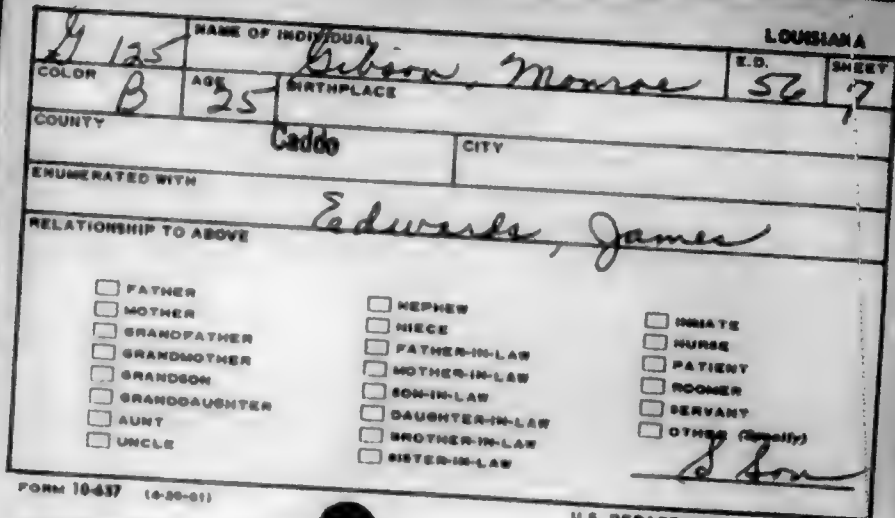 LOUISIANA
G 125 NAME OF INDIVIDUAL Gibson, Monroe E.D. 56 SHEET 7
COLOR B AGE 25 BIRTHPLACE
COUNTY Caddo CITY
ENUMERATED WITH Edwards, James
RELATIONSHIP TO ABOVE
FATHER
MOTHER
GRANDFATHER
GRANDMOTHER
GRANDSON
GRANDDAUGHTER
AUNT
UNCLE
NEPHEW
NIECE
FATHER-IN-LAW
MOTHER-IN-LAW
SON-IN-LAW
DAUGHTER-IN-LAW
BROTHER-IN-LAW
SISTER-IN-LAW
INMATE
NURSE
PATIENT
ROOMER
SERVANT
OTHER (Specify)
S Son
FORM 10-637
U.S.